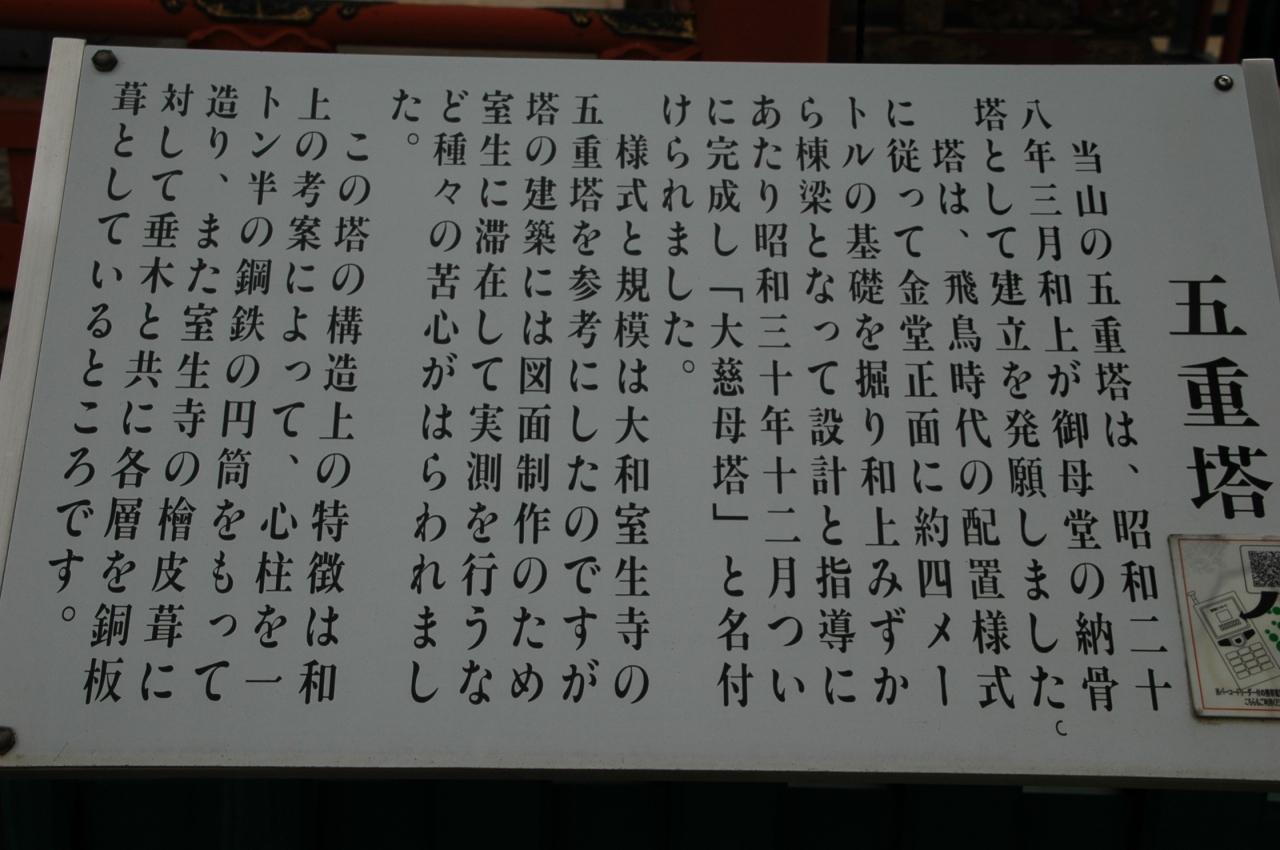 五重塔
当山の五重塔は、昭和二十
八年三月和上が御母堂の納骨
塔として建立を発願しました。
塔は、飛鳥時代の配置様式
に従って金堂正面に約四メー
トルの基礎を掘り和上みずか
ら棟梁となって設計と指導に
あたり昭和三十年十二月つい
に完成し「大慈母塔」と名付
けられました。
様式と規模は大和室生寺の
五重塔を参考にしたのですが
塔の建築には図面制作のため
室生に滞在して実測を行うな
ど種々の苦心がはらわれまし
た。
この塔の構造上の特徴は和
上の考案によって、心柱を一
トン半の鋼鉄の円筒をもって
造り、また室生寺の檜皮葺に
対して垂木と共に各層を銅板
葺としているところです。